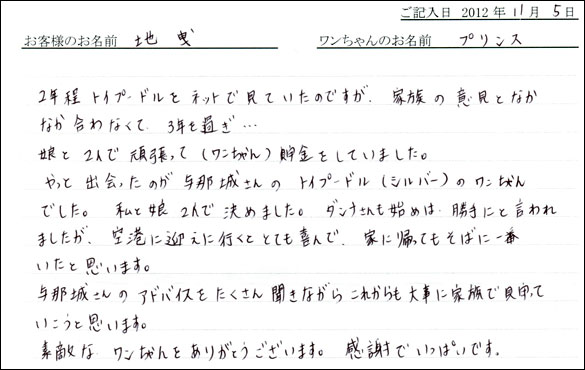 ご記入日 2012 年 11 月 5 日
お客様のお名前 地 曳 ワンちゃんのお名前 プリンス
2年程 トイプードルを ネットで見ていたのですが、家族の 意見となか
なか合わなくて、3年を過ぎ…
娘と 2人で 頑張って (ワンちゃん) 貯金をしていました。
やっと 出会ったのが 与那城さんの トイプードル (シルバー) の ワンちゃん
でした。 私と娘 2人で 決めました。 ダンナさんも始めは、勝手にと言われ
ましたが、空港に迎えに行くと とても喜んで、家に帰ってもそばに一番
いたと思います。
与那城さんの アドバイスを たくさん 聞きながら これからも 大事に家族で 見守って
いこうと思います。
素敵な ワンちゃんを ありがとうございます。 感謝で いっぱいです。